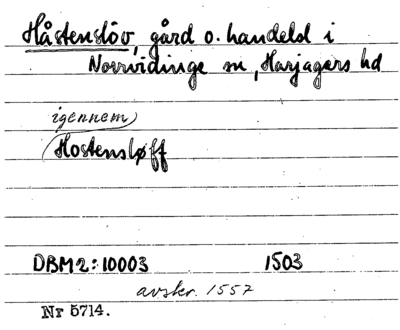 Håstenslöv, gård o. handeld i
Norrvidinge sn, Harjagers hd
igennem
Hostensløff
DBM2:10003 1503
avskr. 1557
Nr 5714.